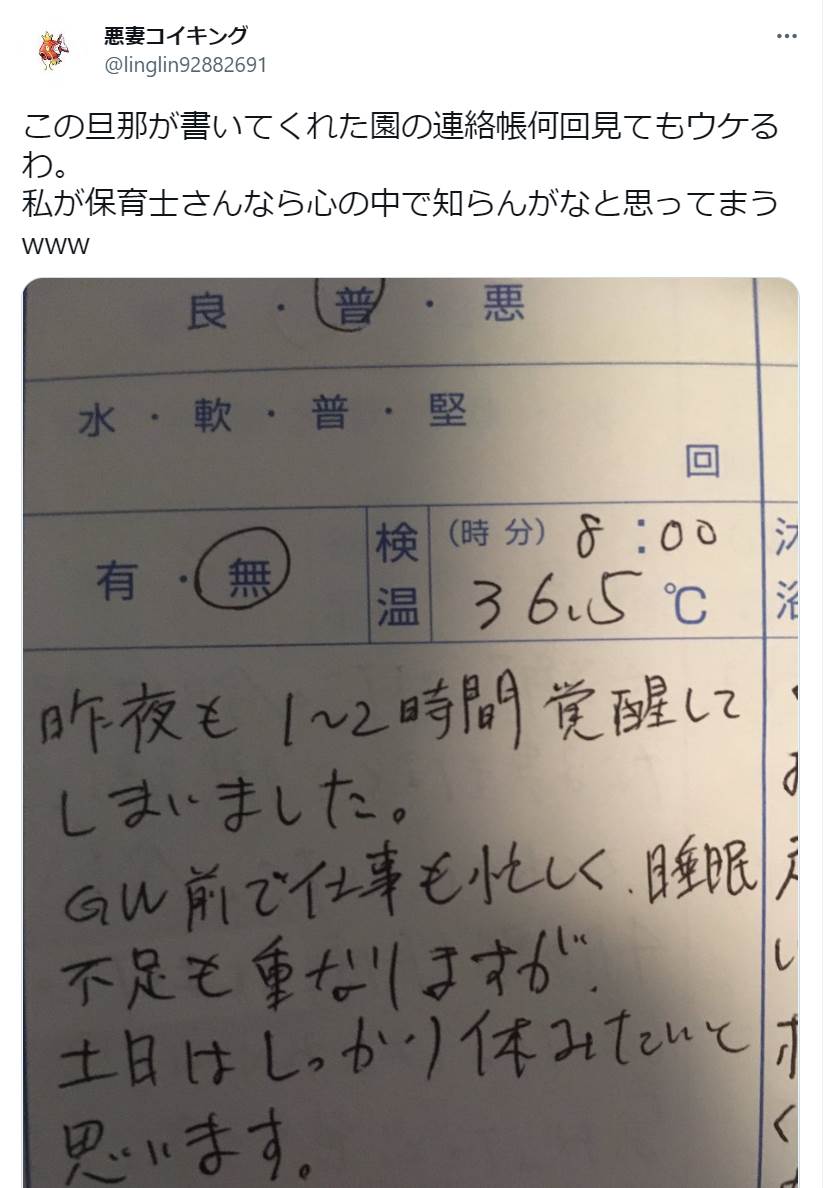 悪妻コイキング
@linglin92882691
この旦那が書いてくれた園の連絡帳何回見てもウケる
わ。
私が保育士さんなら心の中で知らんがなと思ってまう
www
良・普・悪
水・軟・普・堅
回
有・無
検温
(時 分) 8:00
36.5℃
昨夜も1~2時間覚醒して
しまいました。
GW前で仕事も忙しく、睡眠
不足も重なりますが、
土日はしっかり休みたいと
思います。